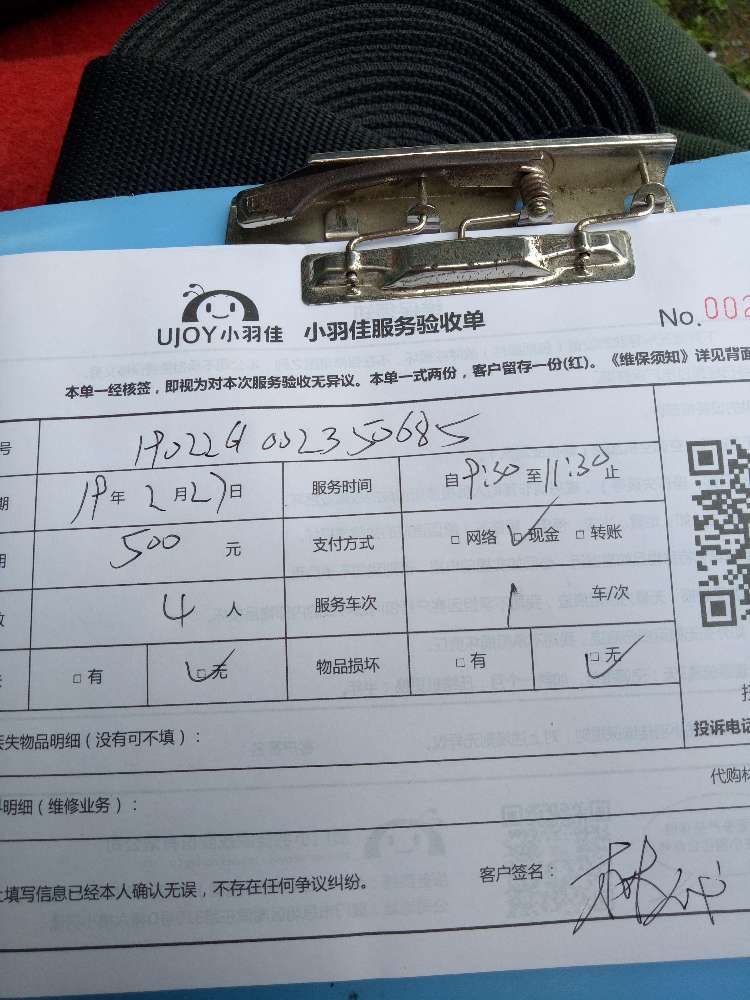 UJOY小羽佳 小羽佳服务验收单
No. 002
本单一经核签，即视为对本次服务验收无异议。本单一式两份，客户留存一份(红)。《维保须知》详见背面
号 190226002350685
期 19年 2月27日 服务时间 自9:30至11:30止
用 500 元 支付方式 □网络 □现金 □转账
数 4 人 服务车次 1 车/次
□有 □无 物品损坏 □有 □无
失物品明细（没有可不填）：
投诉电话
明细（维修业务）：
代购材
上填写信息已经本人确认无误，不存在任何争议纠纷。
客户签名：